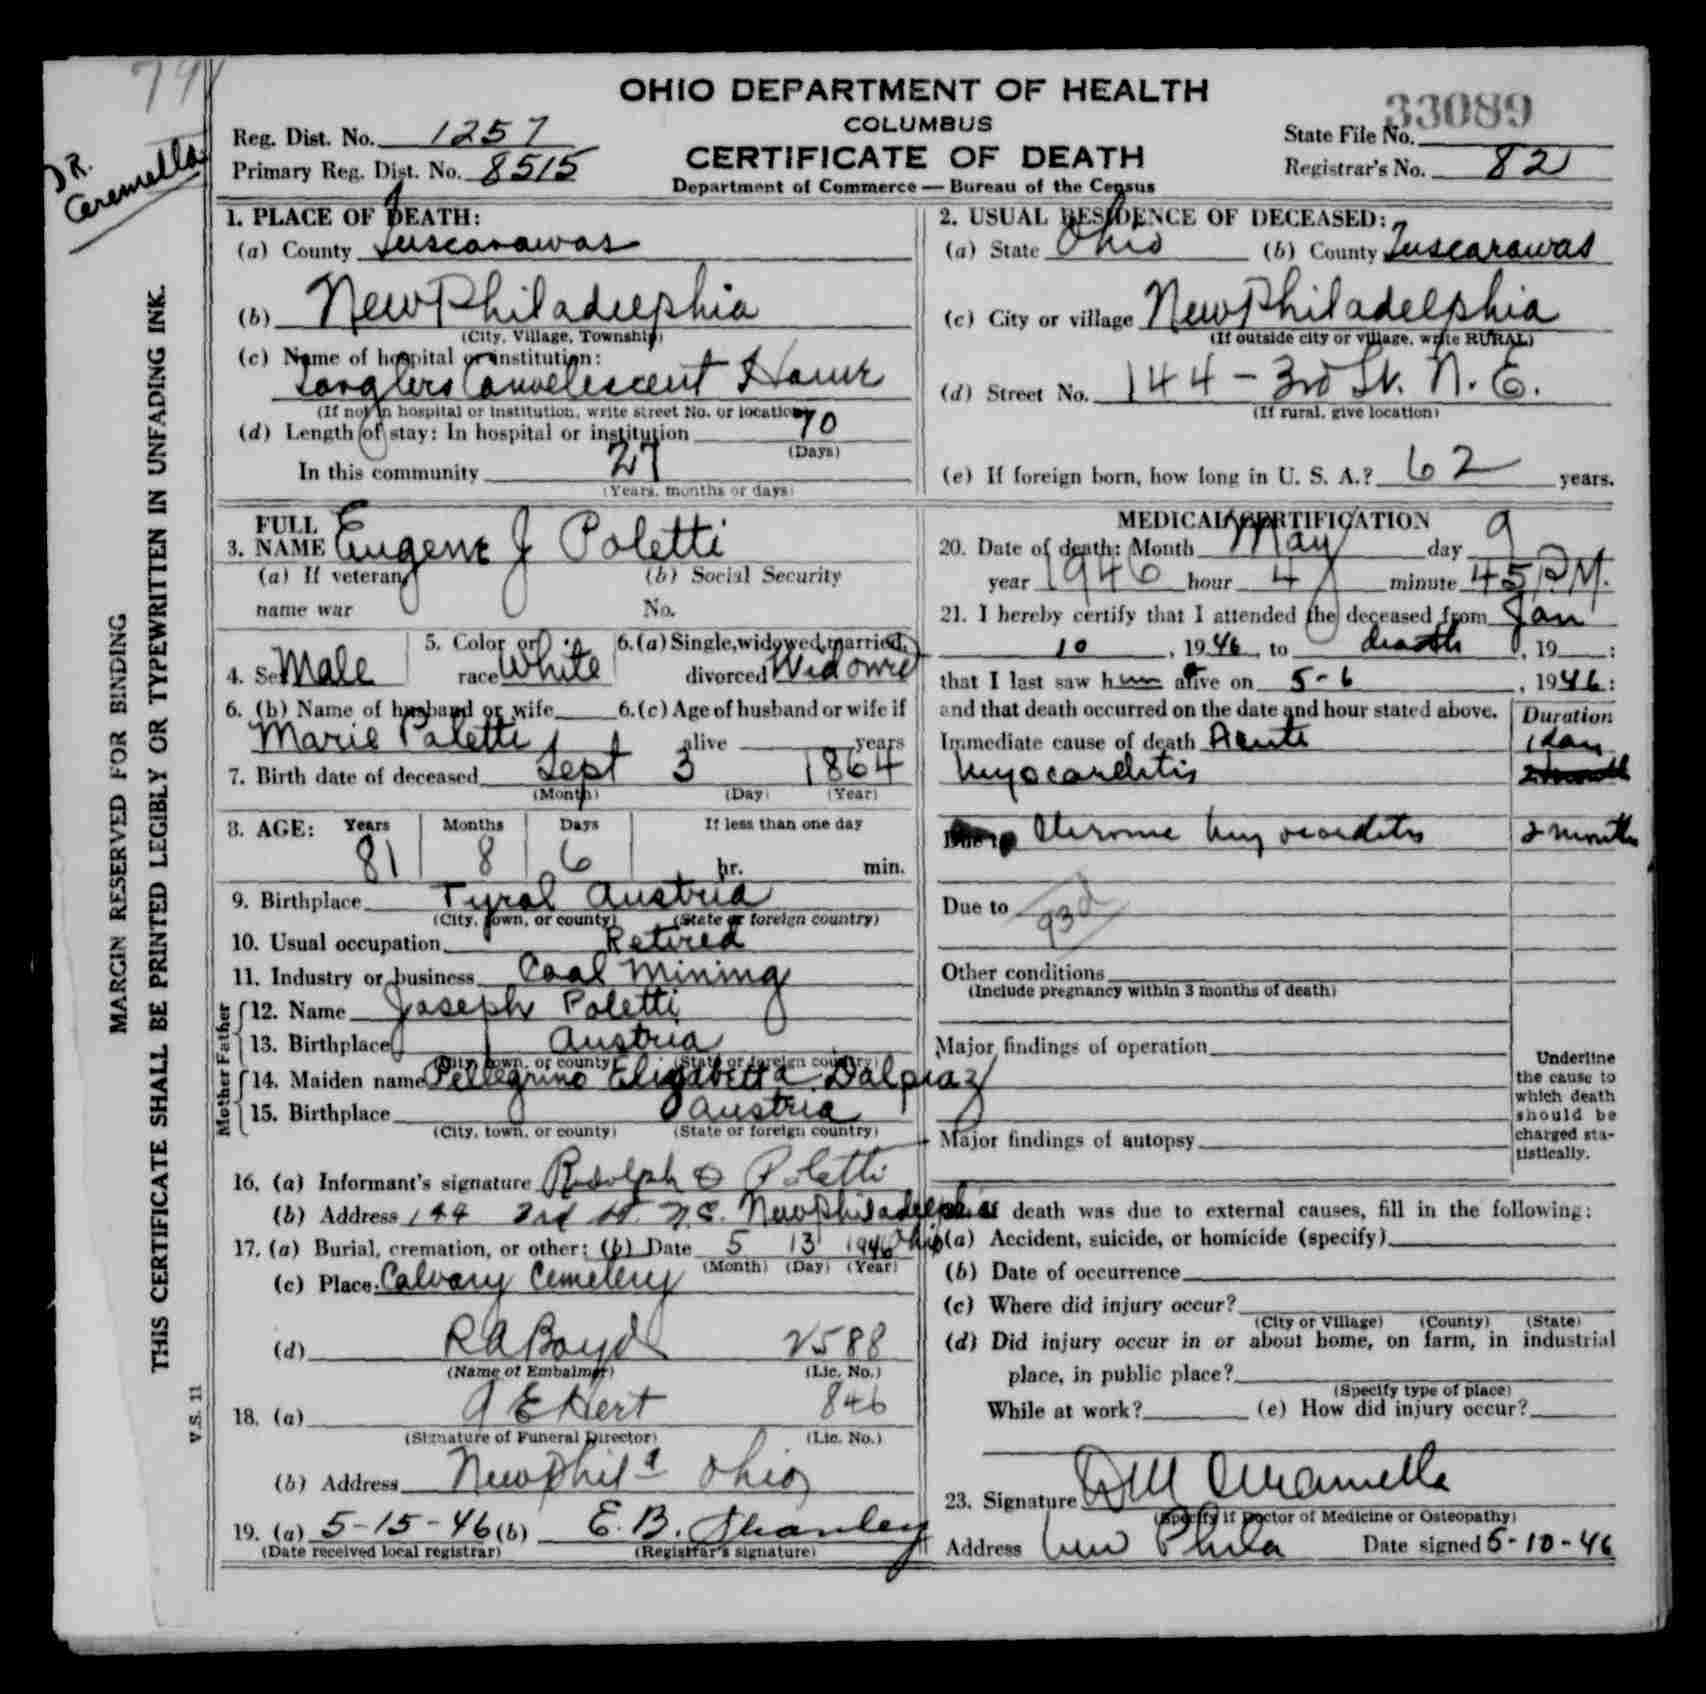 79
DR.
Ceramella
OHIO DEPARTMENT OF HEALTH
COLUMBUS
CERTIFICATE OF DEATH
Department of Commerce — Bureau of the Census
Reg. Dist. No. 1257
Primary Reg. Dist. No. 8515
33089
State File No.
Registrar's No. 82
MARGIN RESERVED FOR BINDING
THIS CERTIFICATE SHALL BE PRINTED LEGIBLY OR TYPEWRITTEN IN UNFADING INK.
V.S. 11
1. PLACE OF DEATH:
(a) County Tuscarawas
(b) New Philadelphia
(City, Village, Township)
(c) Name of hospital or institution:
Convelescent Home
(If not in hospital or institution, write street No. or location)
(d) Length of stay: In hospital or institution 70
(Days)
In this community 27
(Years, months or days)
2. USUAL RESIDENCE OF DECEASED:
(a) State Ohio (b) County Tuscarawas
(c) City or village New Philadelphia
(If outside city or village, write RURAL)
(d) Street No. 144 - 3rd St. N. E.
(If rural, give location)
(e) If foreign born, how long in U. S. A.? 62 years.
3. FULL NAME Eugene J Poletti
(a) If veteran, name war
(b) Social Security No.
4. Sex Male
5. Color or race White
6. (a) Single, widowed, married, divorced Widowed
6. (b) Name of husband or wife
Marie Paletti
6. (c) Age of husband or wife if alive years
7. Birth date of deceased Sept 3 1864
(Month) (Day) (Year)
8. AGE: Years Months Days If less than one day
81 8 6 hr. min.
9. Birthplace Tyrol Austria
(City, town, or county) (State or foreign country)
10. Usual occupation Retired
11. Industry or business Coal Mining
Father
12. Name Joseph Poletti
13. Birthplace Austria
(City, town, or county) (State or foreign country)
Mother
14. Maiden name Pellegrino Elizabetta Dalpiaz
15. Birthplace Austria
(City, town, or county) (State or foreign country)
16. (a) Informant's signature Rudolph O Poletti
(b) Address 144 3rd St. N.E. New Philadelphia Ohio
17. (a) Burial, cremation, or other: (b) Date 5 13 1946
(Month) (Day) (Year)
(c) Place Calvary Cemetery
(d) R A Boyd 2588
(Name of Embalmer) (Lic. No.)
18. (a) 846
(Signature of Funeral Director) (Lic. No.)
(b) Address New Phila Ohio
19. (a) 5-15-46 (b) E. B. Shanley
(Date received local registrar) (Registrar's signature)
MEDICAL CERTIFICATION
20. Date of death: Month May day 9
year 1946 hour 4 minute 45 P.M.
21. I hereby certify that I attended the deceased from Jan
10, 1946, to death, 19 :
that I last saw him alive on 5-6, 1946:
and that death occurred on the date and hour stated above.
Duration
Immediate cause of death Acute 1 day
Myocarditis
Due to Chronic Myocarditis 2 months
Due to
93d
Other conditions
(Include pregnancy within 3 months of death)
Major findings of operation
Major findings of autopsy
Underline
the cause to
which death
should be
charged sta-
tistically.
If death was due to external causes, fill in the following:
(a) Accident, suicide, or homicide (specify)
(b) Date of occurrence
(c) Where did injury occur?
(City or Village) (County) (State)
(d) Did injury occur in or about home, on farm, in industrial
place, in public place?
(Specify type of place)
While at work? (e) How did injury occur?
23. Signature
(Specify if Doctor of Medicine or Osteopathy)
Address New Phila Date signed 5-10-46